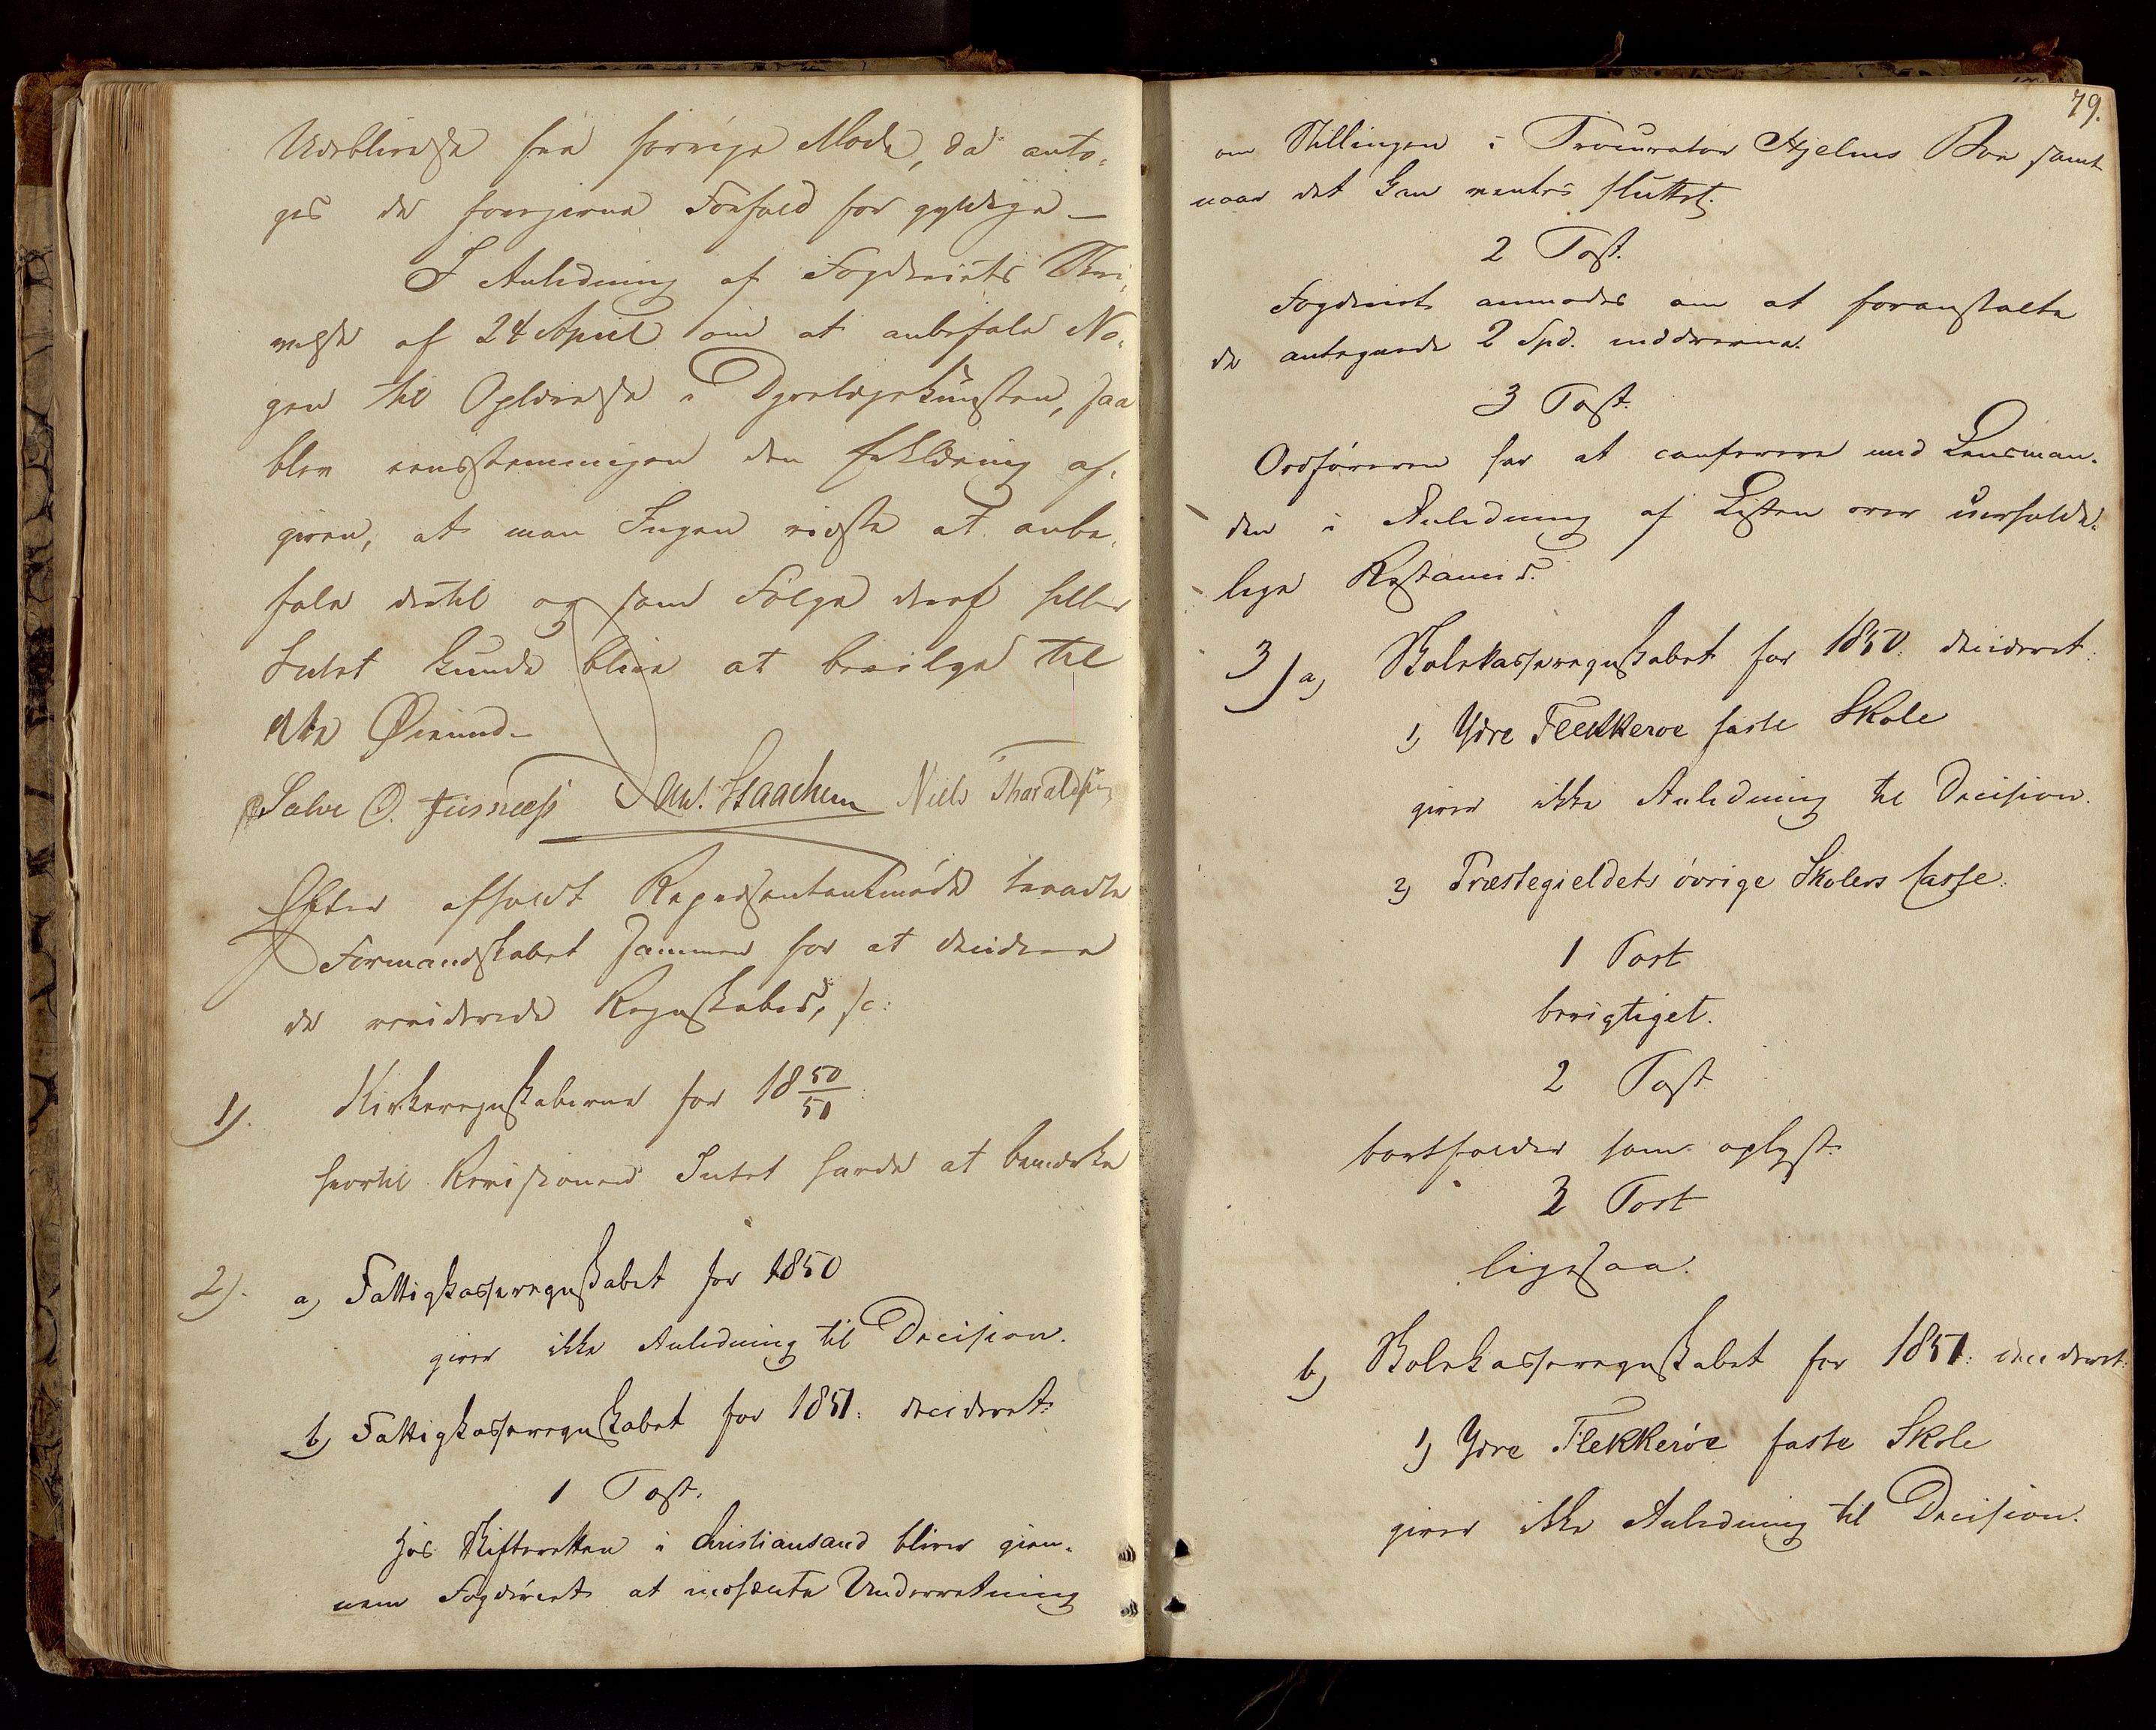 Udeblivelse fra forrige Møde, da anto-
ges de foregivne Forfald for gyldige –
I Anledning af Fogderiets Skri-
velse af 24 April om at anbefale No-
gen til Oplærelse i Dyrelægekunsten, saa
blev eensstemmigen den Erklæring af-
given, at man Ingen vidste at anbe-
fale dertil og som Følge deraf heller
Intet kunde blive at bevilge til
dette Øiemed –
Salve O. Tusnæss Ant. Staachem Niels Tharaldsen
Efter afholdt Repræsentantmøde traadte
Formandskabet sammen for at decidere
de reviderede Regnskaber, sc:
1). Kirkeregnskaberne for 18 50/51:
hvortil Revisionen Intet havde at bemærke
2). a) Fattigkasseregnskabet for 1850
giver ikke Anledning til Decision.
b) Fattigkasseregnskabet for 1851: decideret:
1 Post.
Hos Skifteretten i Christiansand bliver gien-
nem Fogderiet at indhente Underretning
79.
om Stillingen i Procurator Hjelms Boe samt
naar det kan ventes sluttet.
2 Post.
Fogderiet anmodes om at foranstalte
de antegnede 2 Spd. inddrevne.
3 Post.
Ordføreren har at conferere med Lensman-
den i Anledning af Listen over uerholde-
lige Restancer.
3) a) Skolekasseregnskabet for 1850: decideret:
1) Ydre Flekkerøe faste Skole
giver ikke Anledning til Decision.
2) Præstegieldets øvrige Skolers Casse:
1 Post
berigtiget.
2 Post
bortfalder som oplyst.
3 Post
ligesaa.
b) Skolekasseregnskabet for 1851: decideret:
1) Ydre Flekkerøe faste Skole
giver ikke Anledning til Decision.